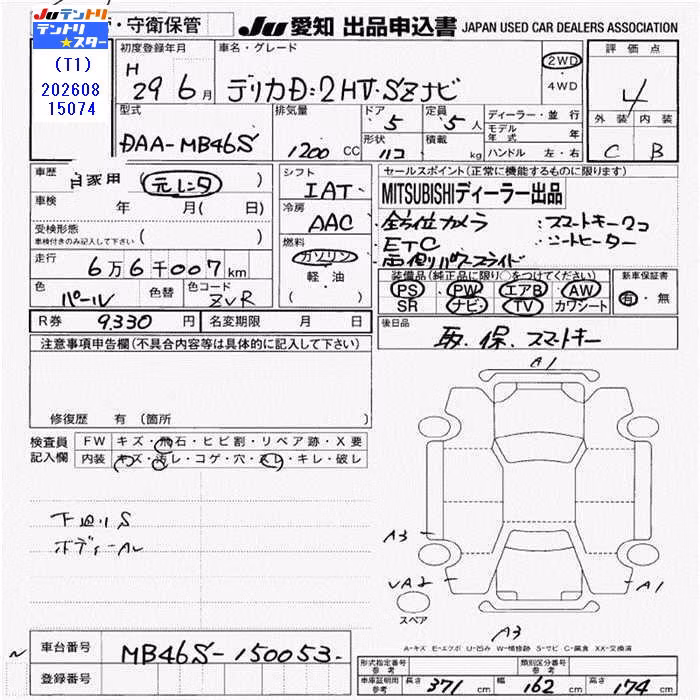 Ju テントリ
テントリ★スター
(T1)
202608
15074
・守衛保管
JU 愛知 出品申込書 JAPAN USED CAR DEALERS ASSOCIATION
初度登録年月
H 29 6月
車名・グレード
デリカD:2 HV・SZナビ
2WD
・
4WD
評価点
4
外装 内装
C B
型式
DAA-MB46S
排気量
1200 CC
ドア
5
定員
5人
形状
積載
kg
ディーラー・並行
モデル年式 年
ハンドル 左・右
車歴
自家用 (元レンタ)
車検
年 月( 日)
受検形態
車検付きのみ記入して下さい ( )
走行
6万6千007km
色
パール
色替
色コード
ZVR
シフト
IAT
冷房
AAC
燃料
ガソリン
・
軽・油
( )
セールスポイント(正常に機能するものに限ります)
MITSUBISHIディーラー出品
全方位カメラ ・スマートキー2コ
ETC ・シートヒーター
両側パワースライド
装備品(純正品に限り○をつけてください)
PS PW エアB AW
SR ナビ TV カワシート
新車保証書
有・無
R券 9.330 円
名変期限 月 日
後日品
取.保.スマートキー
注意事項申告欄(不具合内容等は具体的に記入して下さい)
修復歴 有(箇所
検査員
記入欄
FW キズ・飛石・ヒビ割・リペア跡・X要
内装 キズ・汚レ・コゲ・穴・スレ・キレ・破レ
下廻りS
A1
A3
A2
A1
A3
スペア
A-キズ E-エクボ U-凹み W-補修跡 S-サビ C-腐食 XX-交換済
車台番号
MB46S-150053
登録番号
形式指定番号
参考
類別区分番号
参考
車庫証明用
参考
長さ 371 cm 幅 162 cm 高さ 174 cm